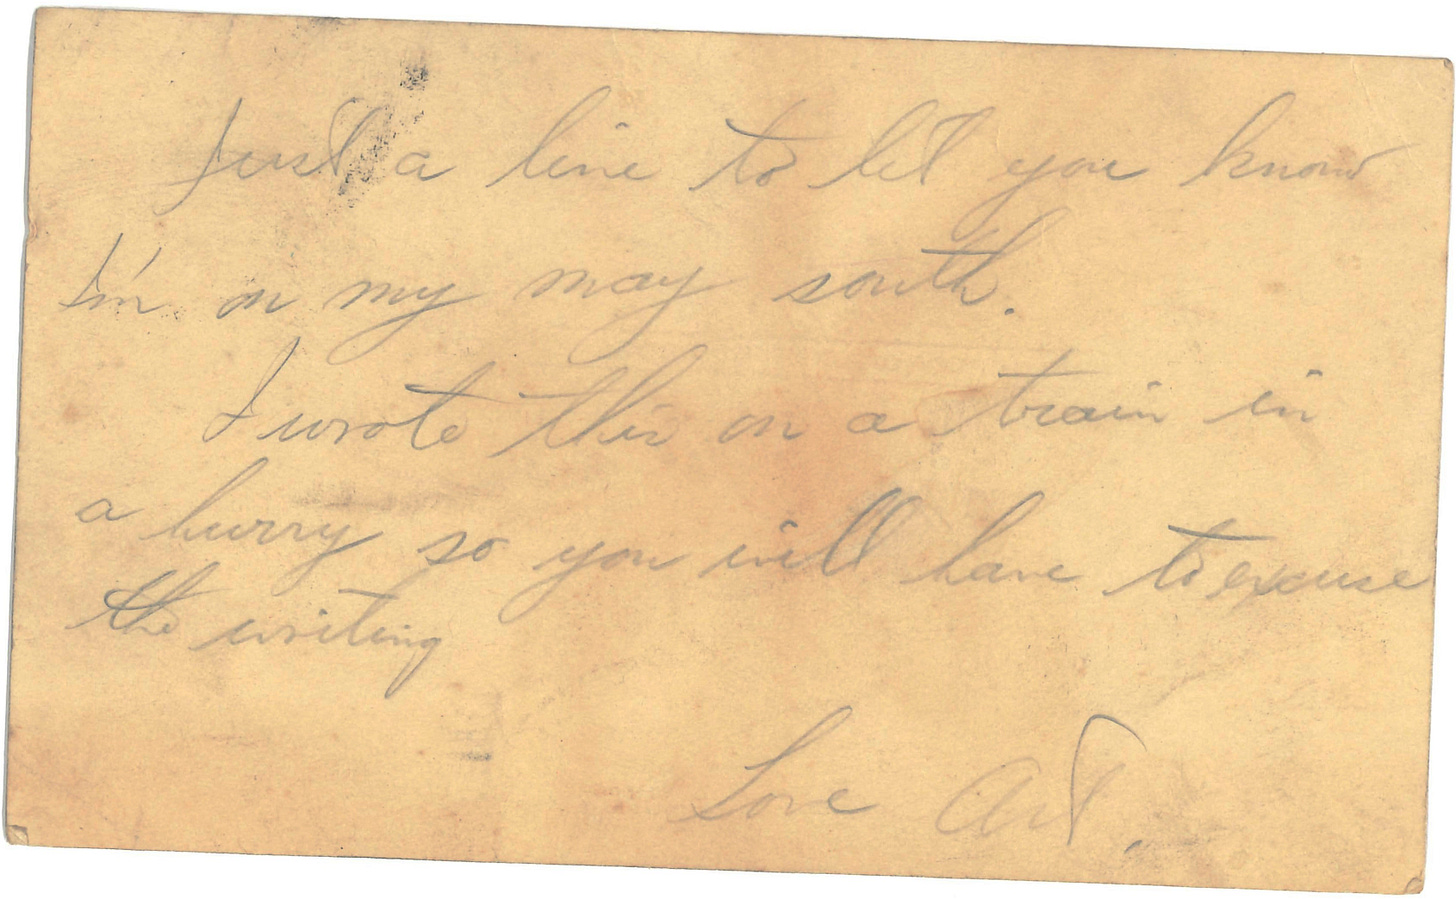 Just a line to let you know
I'm on my way south.
I wrote this on a train in
a hurry so you will have to excuse
the writing
Love Art.